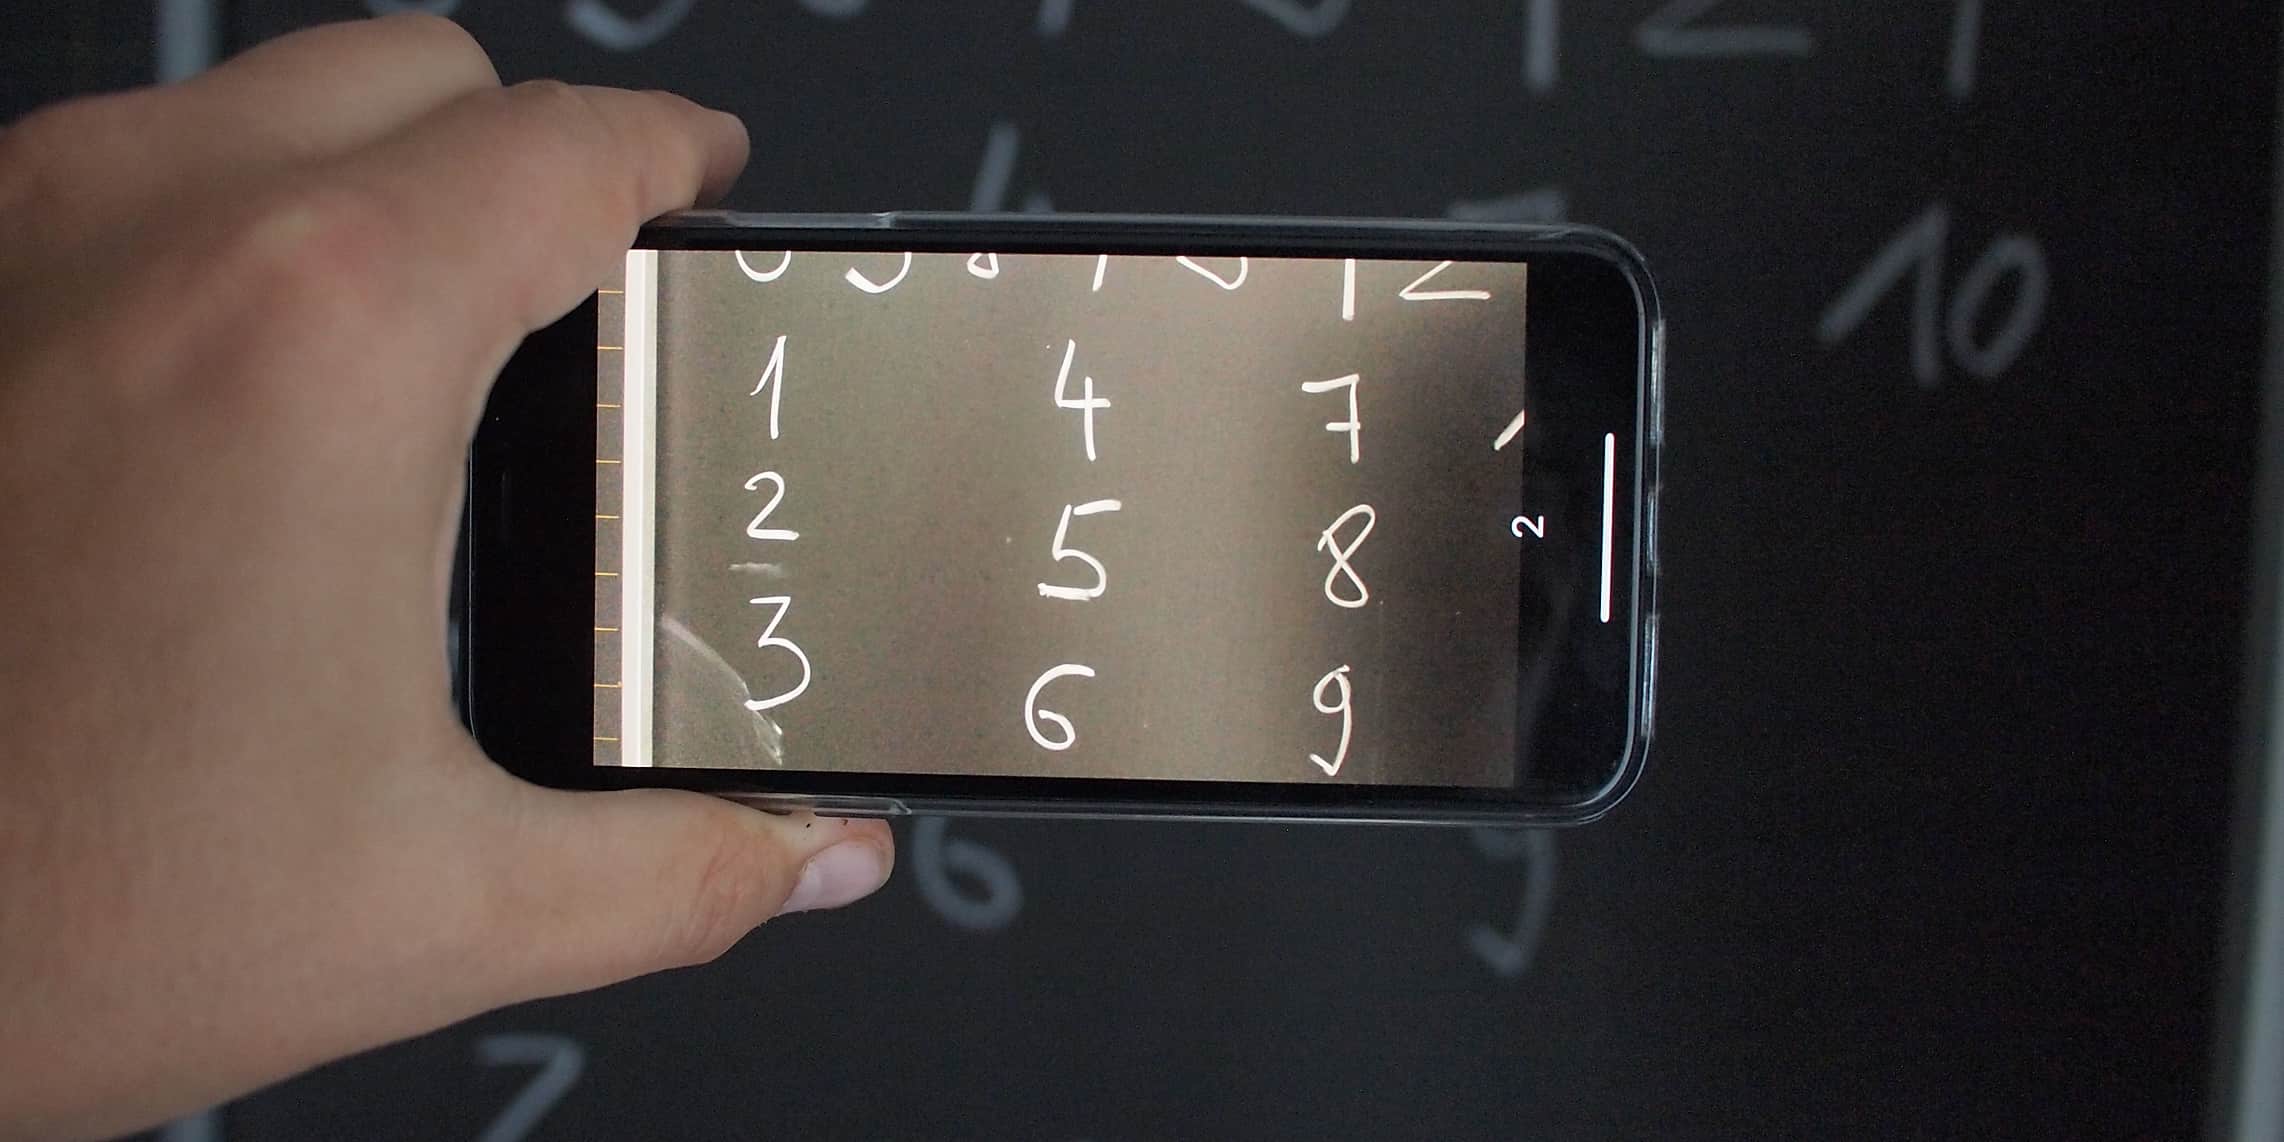 1 4 7 10
2 5 8
3 6 9
2
6 9